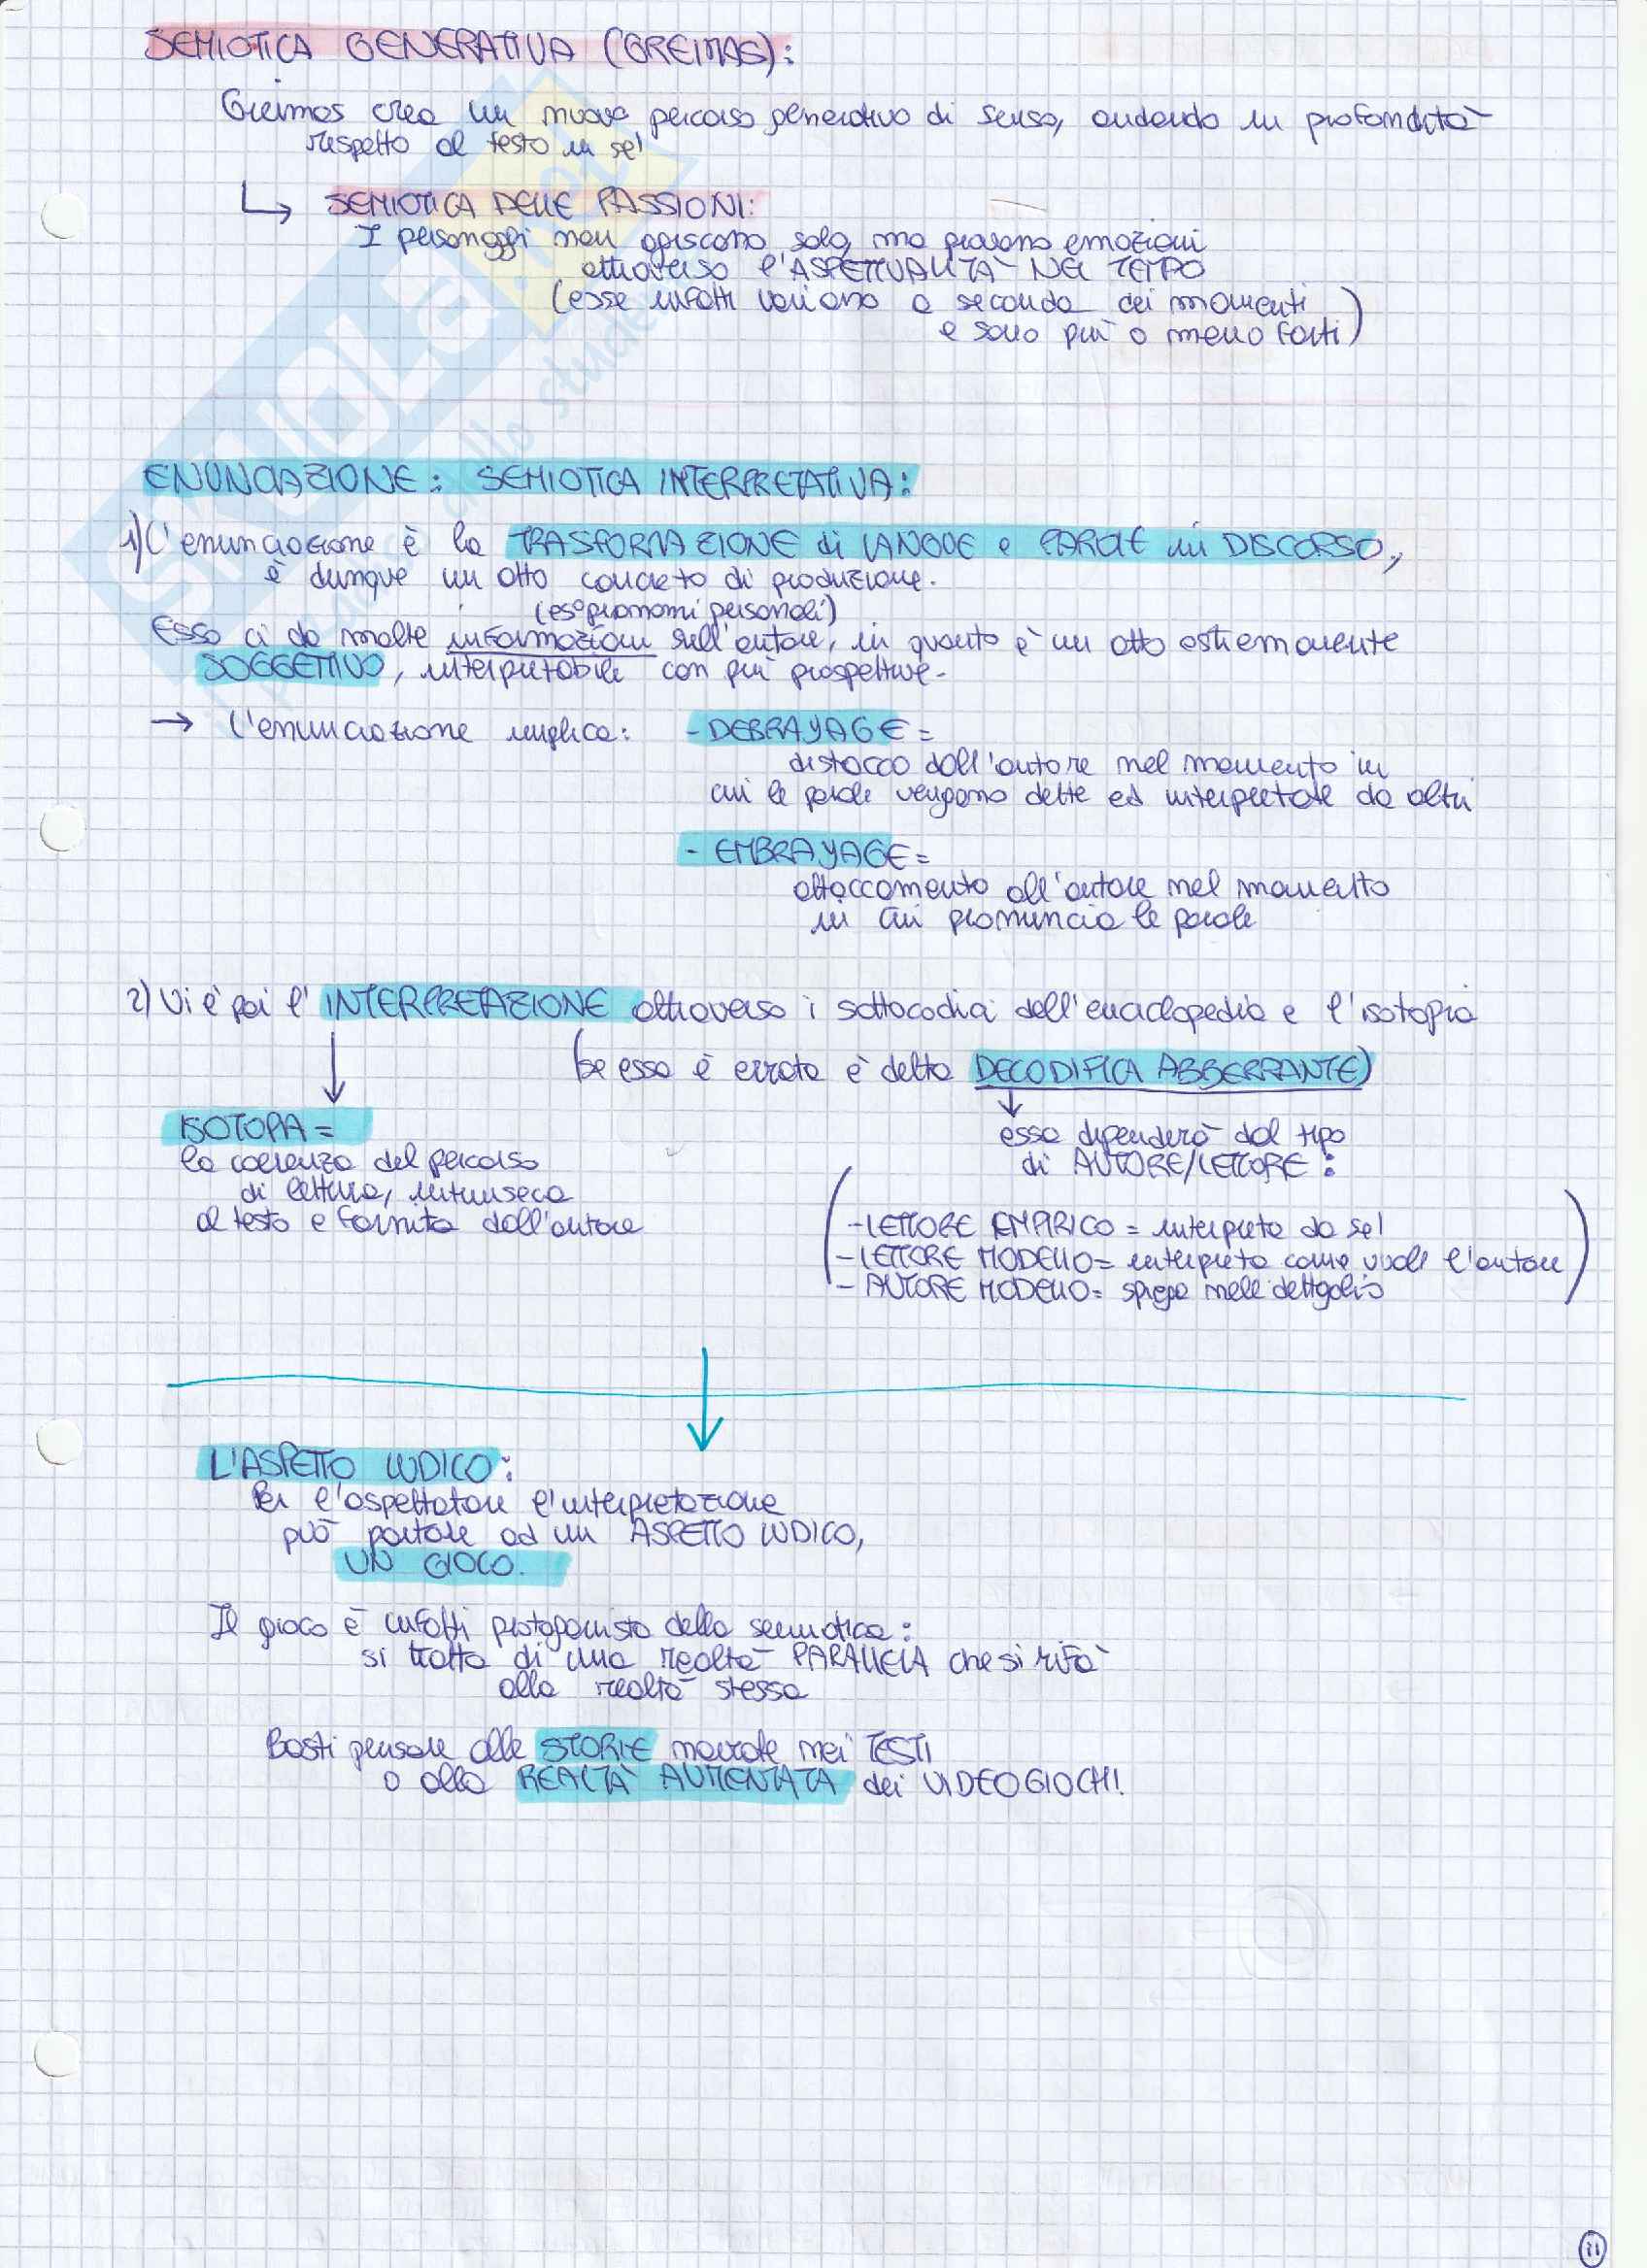 SEMIOTICA GENERATIVA (GREIMAS):
Greimas crea un nuovo percorso generativo di senso, andando in profondità
rispetto al testo in se'
SEMIOTICA DELLE PASSIONI:
I personaggi non agiscono solo, ma provano emozioni
attraverso l'ASPETTUALITÀ NEL TEMPO
(esse infatti variano a seconda dei momenti
e sono più o meno forti)
ENUNCIAZIONE: SEMIOTICA INTERPRETATIVA:
1) L'enunciazione è la TRASFORMAZIONE di LANGUE e PAROLE in DISCORSO,
è dunque un atto concreto di produzione.
(es° pronomi personali)
Essa ci da molte informazioni sull'autore, in quanto è un atto estremamente
SOGGETTIVO, interpretabile con più prospettive.
→ L'enunciazione implica: - DEBRAYAGE =
distacco dall'autore nel momento in
cui le parole vengono dette ed interpretate da altri
- EMBRAYAGE =
attaccamento all'autore nel momento
in cui pronuncia le parole
2) Vi è poi l'INTERPRETAZIONE attraverso i sottocodici dell'enciclopedia e l'isotopia
(se essa è errata è detta DECODIFICA ABBERRANTE)
ISOTOPIA =
la coerenza del percorso
di lettura, intrinseca
al testo e fornita dall'autore
essa dipenderà dal tipo
di AUTORE/LETTORE:
- LETTORE EMPIRICO = interpreta da se'
- LETTORE MODELLO = interpreta come vuole l'autore
- AUTORE MODELLO = spiega nelle dettaglio
L'ASPETTO LUDICO:
Per l'aspettatore l'interpretazione
può portare ad un ASPETTO LUDICO,
UN GIOCO.
Il gioco è infatti protagonista della semiotica:
si tratta di una realtà PARALLELA che si rifà
alla realtà stessa
Basti pensare alle STORIE narrate nei TESTI
o alla REALTÀ AUMENTATA dei VIDEOGIOCHI!
11